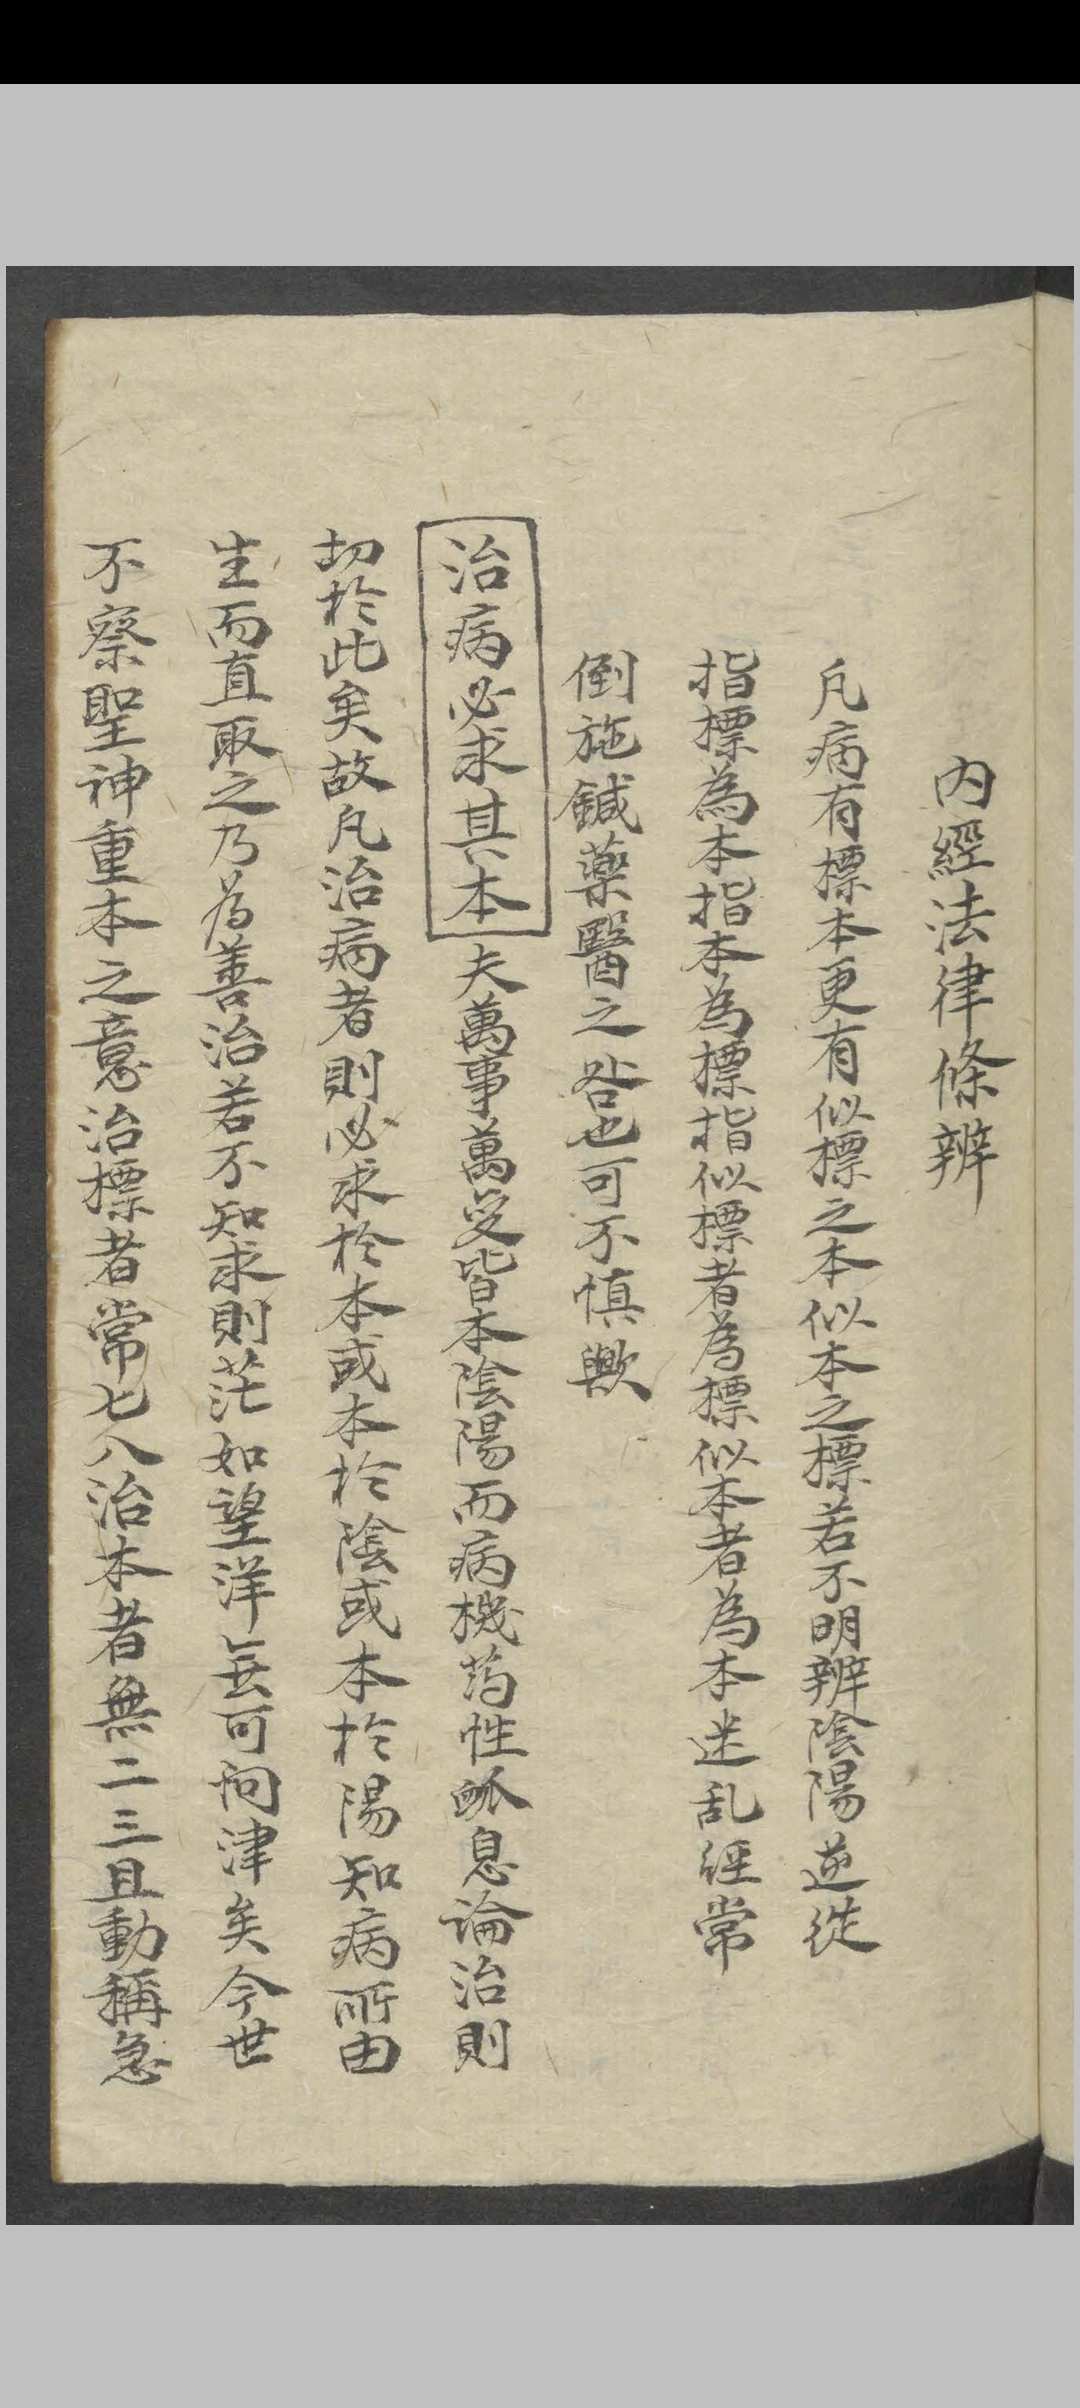 內經法律條辨
凡病有標本更有似標之本似本之標若不明辨陰陽逆從
指標為本指本為標指似標者為標似本者為本迷乱經常
倒施鍼藥醫之咎也可不慎歟
治病必求其本夫萬事萬变皆本陰陽而病機药性脈息論治則
切於此矣故凡治病者則必求於本或本於陰或本於陽知病所由
生而直取之乃為善治若不知求則茫如望洋無可问津矣今世
不察聖神重本之意治標者常七八治本者無二三且動稱急